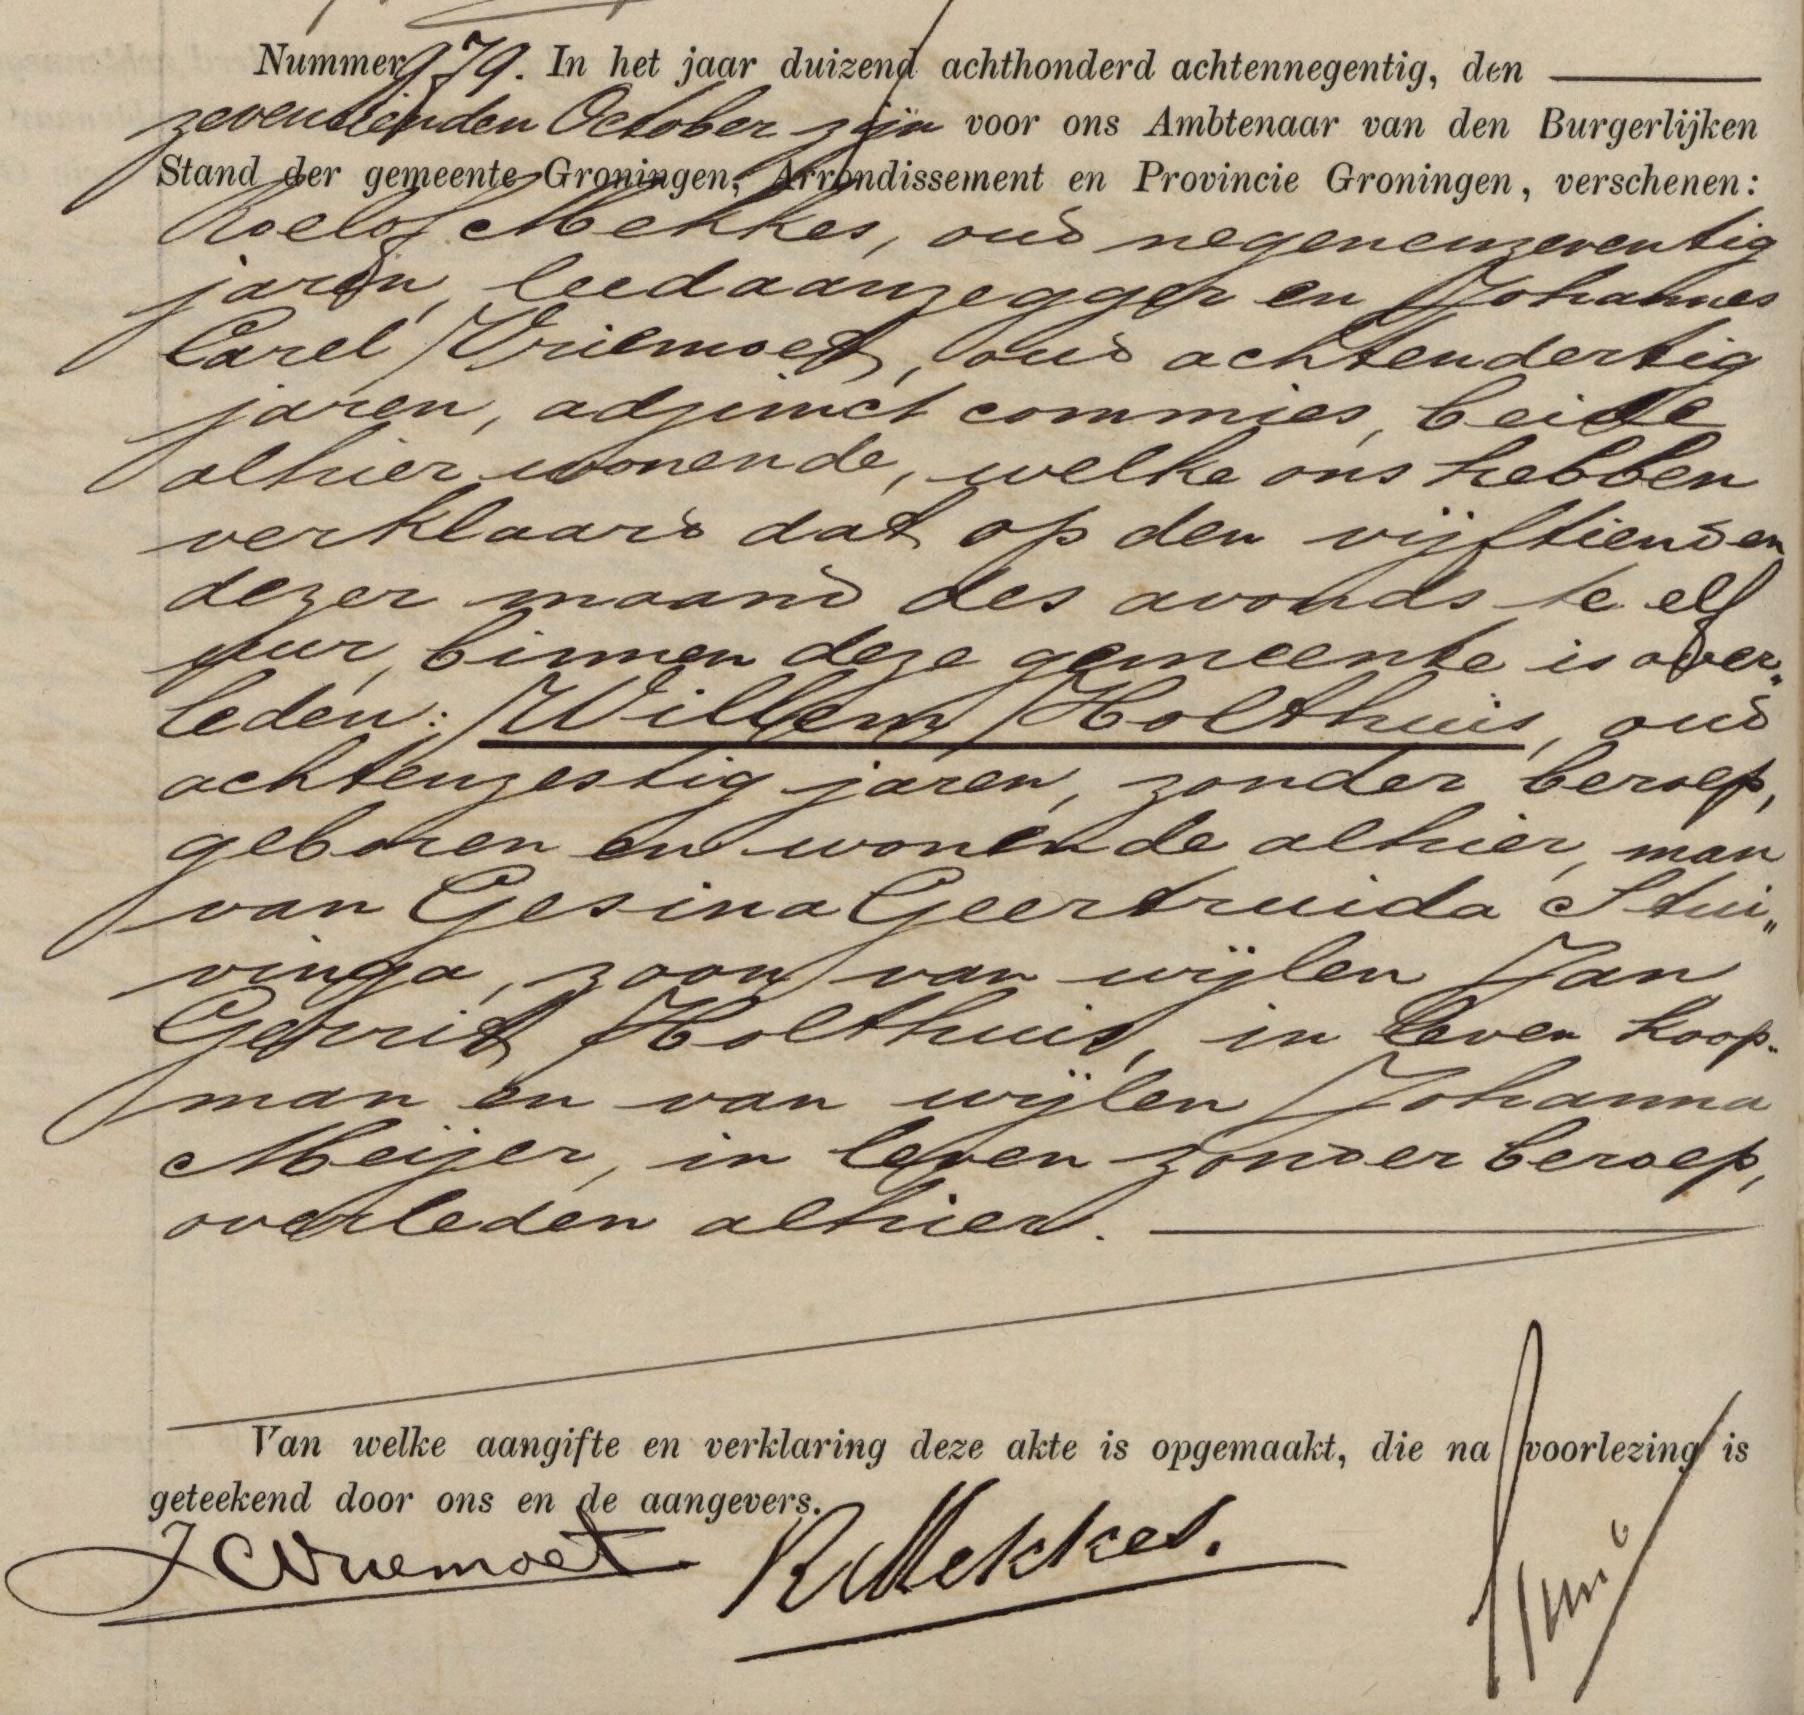 Nummer 979. In het jaar duizend achthonderd achtennegentig, den
zeventienden October zijn voor ons Ambtenaar van den Burgerlijken
Stand der gemeente Groningen, Arrondissement en Provincie Groningen, verschenen:
Roelof Mekkes, oud negenenzeventig
jaren, leedaanzegger en Johannes
Carel Vriemoet, oud achtendertig
jaren, adjunct commies, beide
alhier wonende, welke ons hebben
verklaard dat op den vijftienden
dezer maand des avonds te elf
uur, binnen deze gemeente is over„
leden: Willem Holthuis, oud
achtenzestig jaren, zonder beroep,
geboren en wonende alhier, man
van Gesina Geertruida Stui„
vinga, zoon van wijlen Jan
Gerrit Holthuis, in leven koop„
man en van wijlen Johanna
Meijer, in leven zonder beroep,
overleden alhier.
Van welke aangifte en verklaring deze akte is opgemaakt, die na voorlezing is
geteekend door ons en de aangevers.
J C Vriemoet R Mekkes.